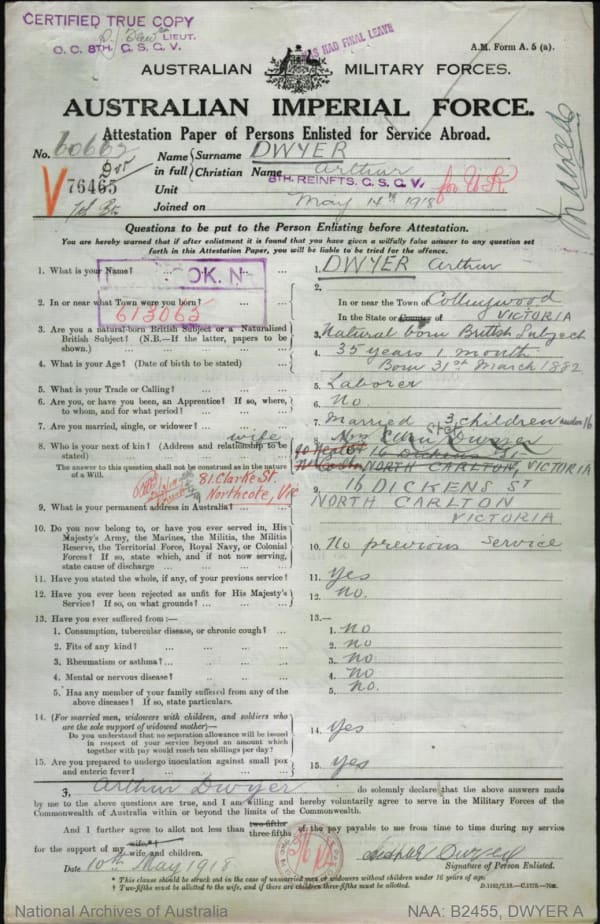 CERTIFIED TRUE COPY
LIEUT.
O. C. 8TH. G. S. G. V.
HAS HAD FINAL LEAVE
A.M. Form A. 5 (a).
AUSTRALIAN MILITARY FORCES.
AUSTRALIAN IMPERIAL FORCE.
Attestation Paper of Persons Enlisted for Service Abroad.
No. 60663
V 76465
Name in full
Surname DWYER
Christian Name Arthur
Unit 8TH. REINFTS. G. S. G. V.
Joined on May 14th 1918
Questions to be put to the Person Enlisting before Attestation.
You are hereby warned that if after enlistment it is found that you have given a wilfully false answer to any question set
forth in this Attestation Paper, you will be liable to be tried for the offence.
1. What is your Name? ... 1. DWYER Arthur
OK. N
613065
2. In or near what Town were you born? ... 2. In or near the Town of Collingwood
In the State or County of VICTORIA
3. Are you a natural-born British Subject or a Naturalized
British Subject? (N.B.—If the latter, papers to be
shown.) ... 3. Natural born British Subject
4. What is your Age? (Date of birth to be stated) ... 4. 35 years 1 month
Born 31st March 1882
5. What is your Trade or Calling? ... 5. Laborer
6. Are you, or have you been, an Apprentice? If so, where,
to whom, and for what period? ... 6. No
7. Are you married, single, or widower? ... 7. Married 3 children under 16
8. Who is your next of kin? (Address and relationship to be
stated) ... wife
8. Mrs Ellen Dwyer
16 Dickens St
NORTH CARLTON, VICTORIA
The answer to this question shall not be construed as in the nature
of a Will.
81. Clarke St.
Northcote, Vic
9. What is your permanent address in Australia? ... 9. 16 DICKENS ST
NORTH CARLTON
VICTORIA
10. Do you now belong to, or have you ever served in, His
Majesty's Army, the Marines, the Militia, the Militia
Reserve, the Territorial Force, Royal Navy, or Colonial
Forces? If so, state which, and if not now serving,
state cause of discharge ... 10. No previous service
11. Have you stated the whole, if any, of your previous service? 11. yes
12. Have you ever been rejected as unfit for His Majesty's
Service? If so, on what grounds? ... 12. no.
13. Have you ever suffered from:— 13.—
1. Consumption, tubercular disease, or chronic cough? ... 1. no
2. Fits of any kind? ... 2. no
3. Rheumatism or asthma? ... 3. no
4. Mental or nervous disease? ... 4. no
5. Has any member of your family suffered from any of the
above diseases? If so, state particulars. 5. no.
14. (For married men, widowers with children, and soldiers who
are the sole support of widowed mother)—
Do you understand that no separation allowance will be issued
in respect of your service beyond an amount which
together with pay would reach ten shillings per day? ... 14. yes
15. Are you prepared to undergo inoculation against small pox
and enteric fever? ... 15. yes
I, Arthur Dwyer do solemnly declare that the above answers made
by me to the above questions are true, and I am willing and hereby voluntarily agree to serve in the Military Forces of the
Commonwealth of Australia within or beyond the limits of the Commonwealth.
And I further agree to allot not less than two-fifths three-fifths of the pay payable to me from time to time during my service
for the support of my wife† wife and children.
Date 10th May 1918
Signature of Person Enlisted.
* This clause should be struck out in the case of unmarried men or widowers without children under 16 years of age.
† Two-fifths must be allotted to the wife, and if there are children three-fifths must be allotted.
National Archives of Australia
NAA: B2455, DWYER A